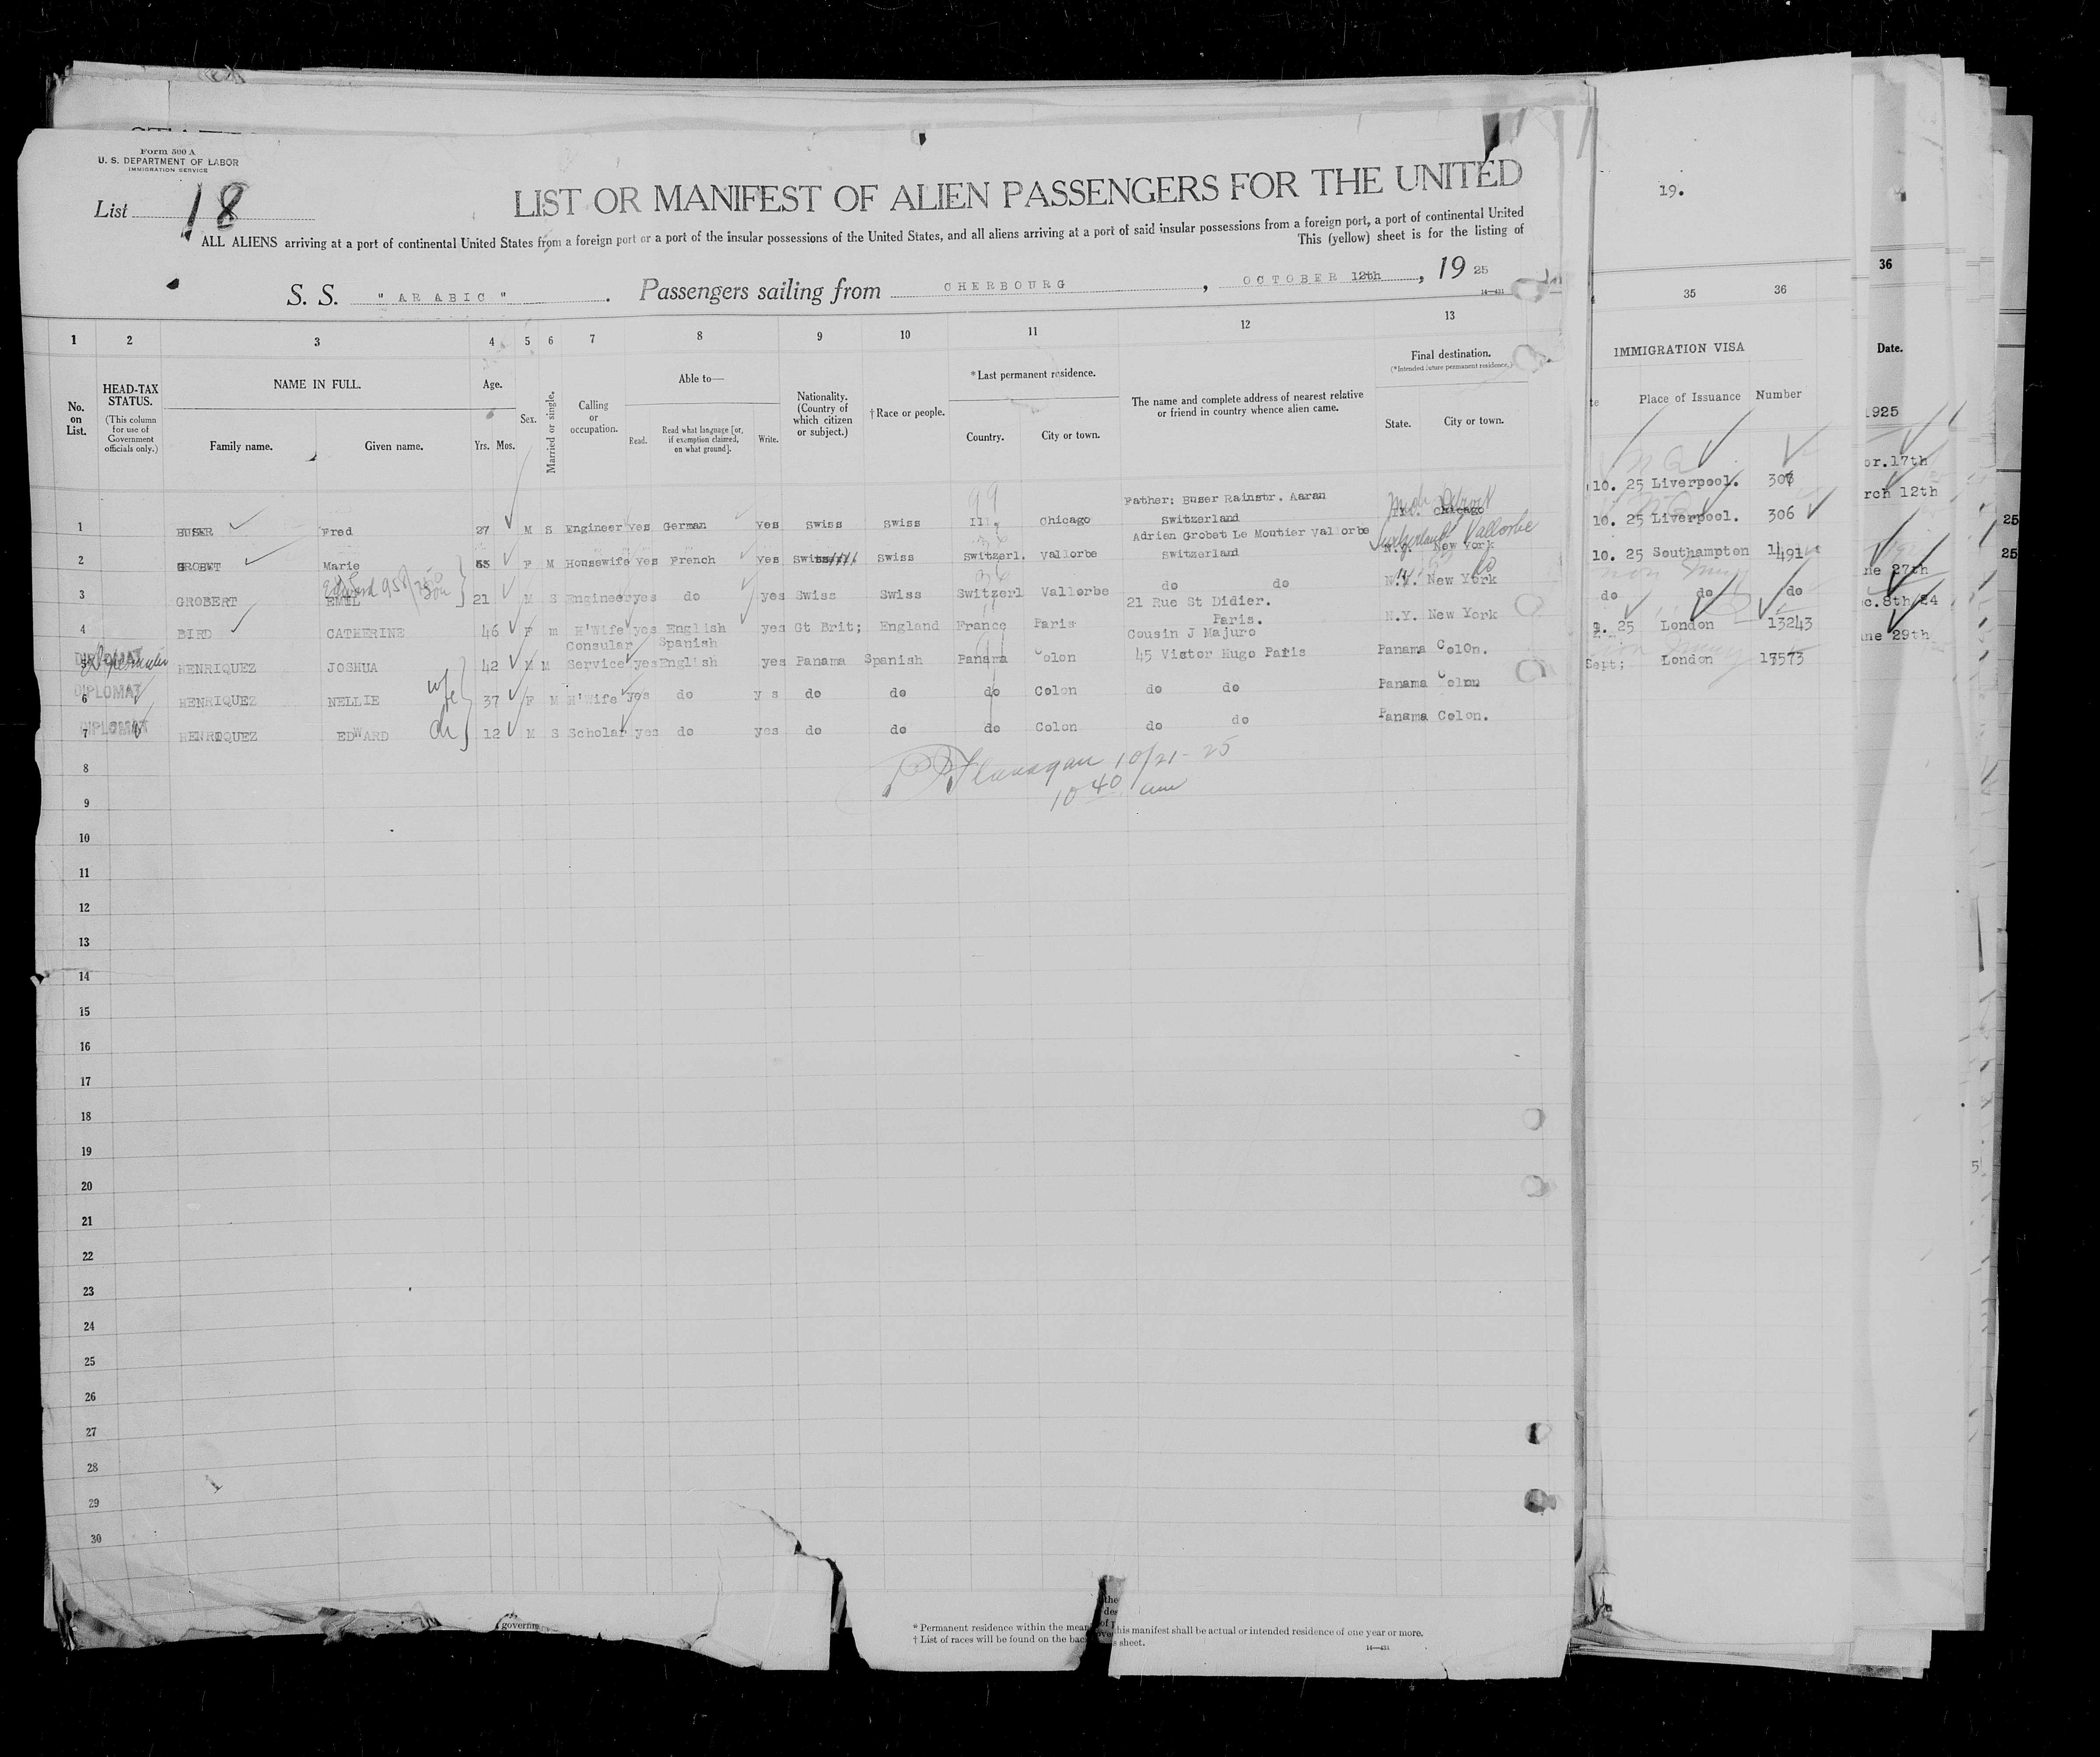 Form 500 A
U. S. DEPARTMENT OF LABOR
IMMIGRATION SERVICE
List 18
LIST OR MANIFEST OF ALIEN PASSENGERS FOR THE UNITED
ALL ALIENS arriving at a port of continental United States from a foreign port or a port of the insular possessions of the United States, and all aliens arriving at a port of said insular possessions from a foreign port, a port of continental United
This (yellow) sheet is for the listing of
S. S. "ARABIC". Passengers sailing from CHERBOURG, OCTOBER 12th, 1925
16—431
1 2 3 4 5 6 7 8 9 10 11 12 13
No. on List.
HEAD-TAX STATUS.
(This column for use of Government officials only.)
NAME IN FULL.
Family name. Given name.
Age.
Yrs. Mos.
Sex.
Married or single.
Calling or occupation.
Able to—
Read. Read what language [or, if exemption claimed, on what ground]. Write.
Nationality. (Country of which citizen or subject.)
†Race or people.
*Last permanent residence.
Country. City or town.
The name and complete address of nearest relative or friend in country whence alien came.
Final destination.
(*Intended future permanent residence.)
State. City or town.
99 Father: Buser Rainstr. Aaran Mich Detroit
1 BUSER Fred 27 M S Engineer yes German yes Swiss Swiss Ill. Chicago Switzerland Ill. Chicago
Adrien Grobet Le Moutier Vallorbe Switzerland Vallorbe
2 GROBET Marie 55 F M Housewife yes French yes Swiss Swiss Switzerl. Vallorbe Switzerland N.Y. New York
Edward son
3 GROBERT EMIL 21 M S Engineer yes do yes Swiss Swiss Switzerl Vallorbe do do N.Y. New York
21 Rue St Didier.
4 BIRD CATHERINE 46 F m H'Wife yes English yes Gt Brit; England France Paris Paris. N.Y. New York
DIPLOMAT Consular Spanish Cousin J Majuro
5 HENRIQUEZ JOSHUA 42 M M Service yes English yes Panama Spanish Panama Colon 45 Victor Hugo Paris Panama Colon.
DIPLOMAT
6 HENRIQUEZ NELLIE wife 37 F M H'Wife yes do y s do do do Colon do do Panama Colon
DIPLOMAT
7 HENRIQUEZ EDWARD ch 12 M S Scholar yes do yes do do do Colon do do Panama Colon.
8
Flanagan 10/21-25
10 40 am
9
10
11
12
13
14
15
16
17
18
19
20
21
22
23
24
25
26
27
28
29
30
* Permanent residence within the mean his manifest shall be actual or intended residence of one year or more.
† List of races will be found on the bac s sheet.
16—431
governm
19.
35 36
IMMIGRATION VISA
Place of Issuance Number
10. 25 Liverpool. 306
10. 25 Liverpool. 306
10. 25 Southampton 1491
do do do
25 London 13243
Sept; London 13573
36
Date.
1925
or.17th
rch 12th
ne 27th
c.8th 24
une 29th
25
25
5